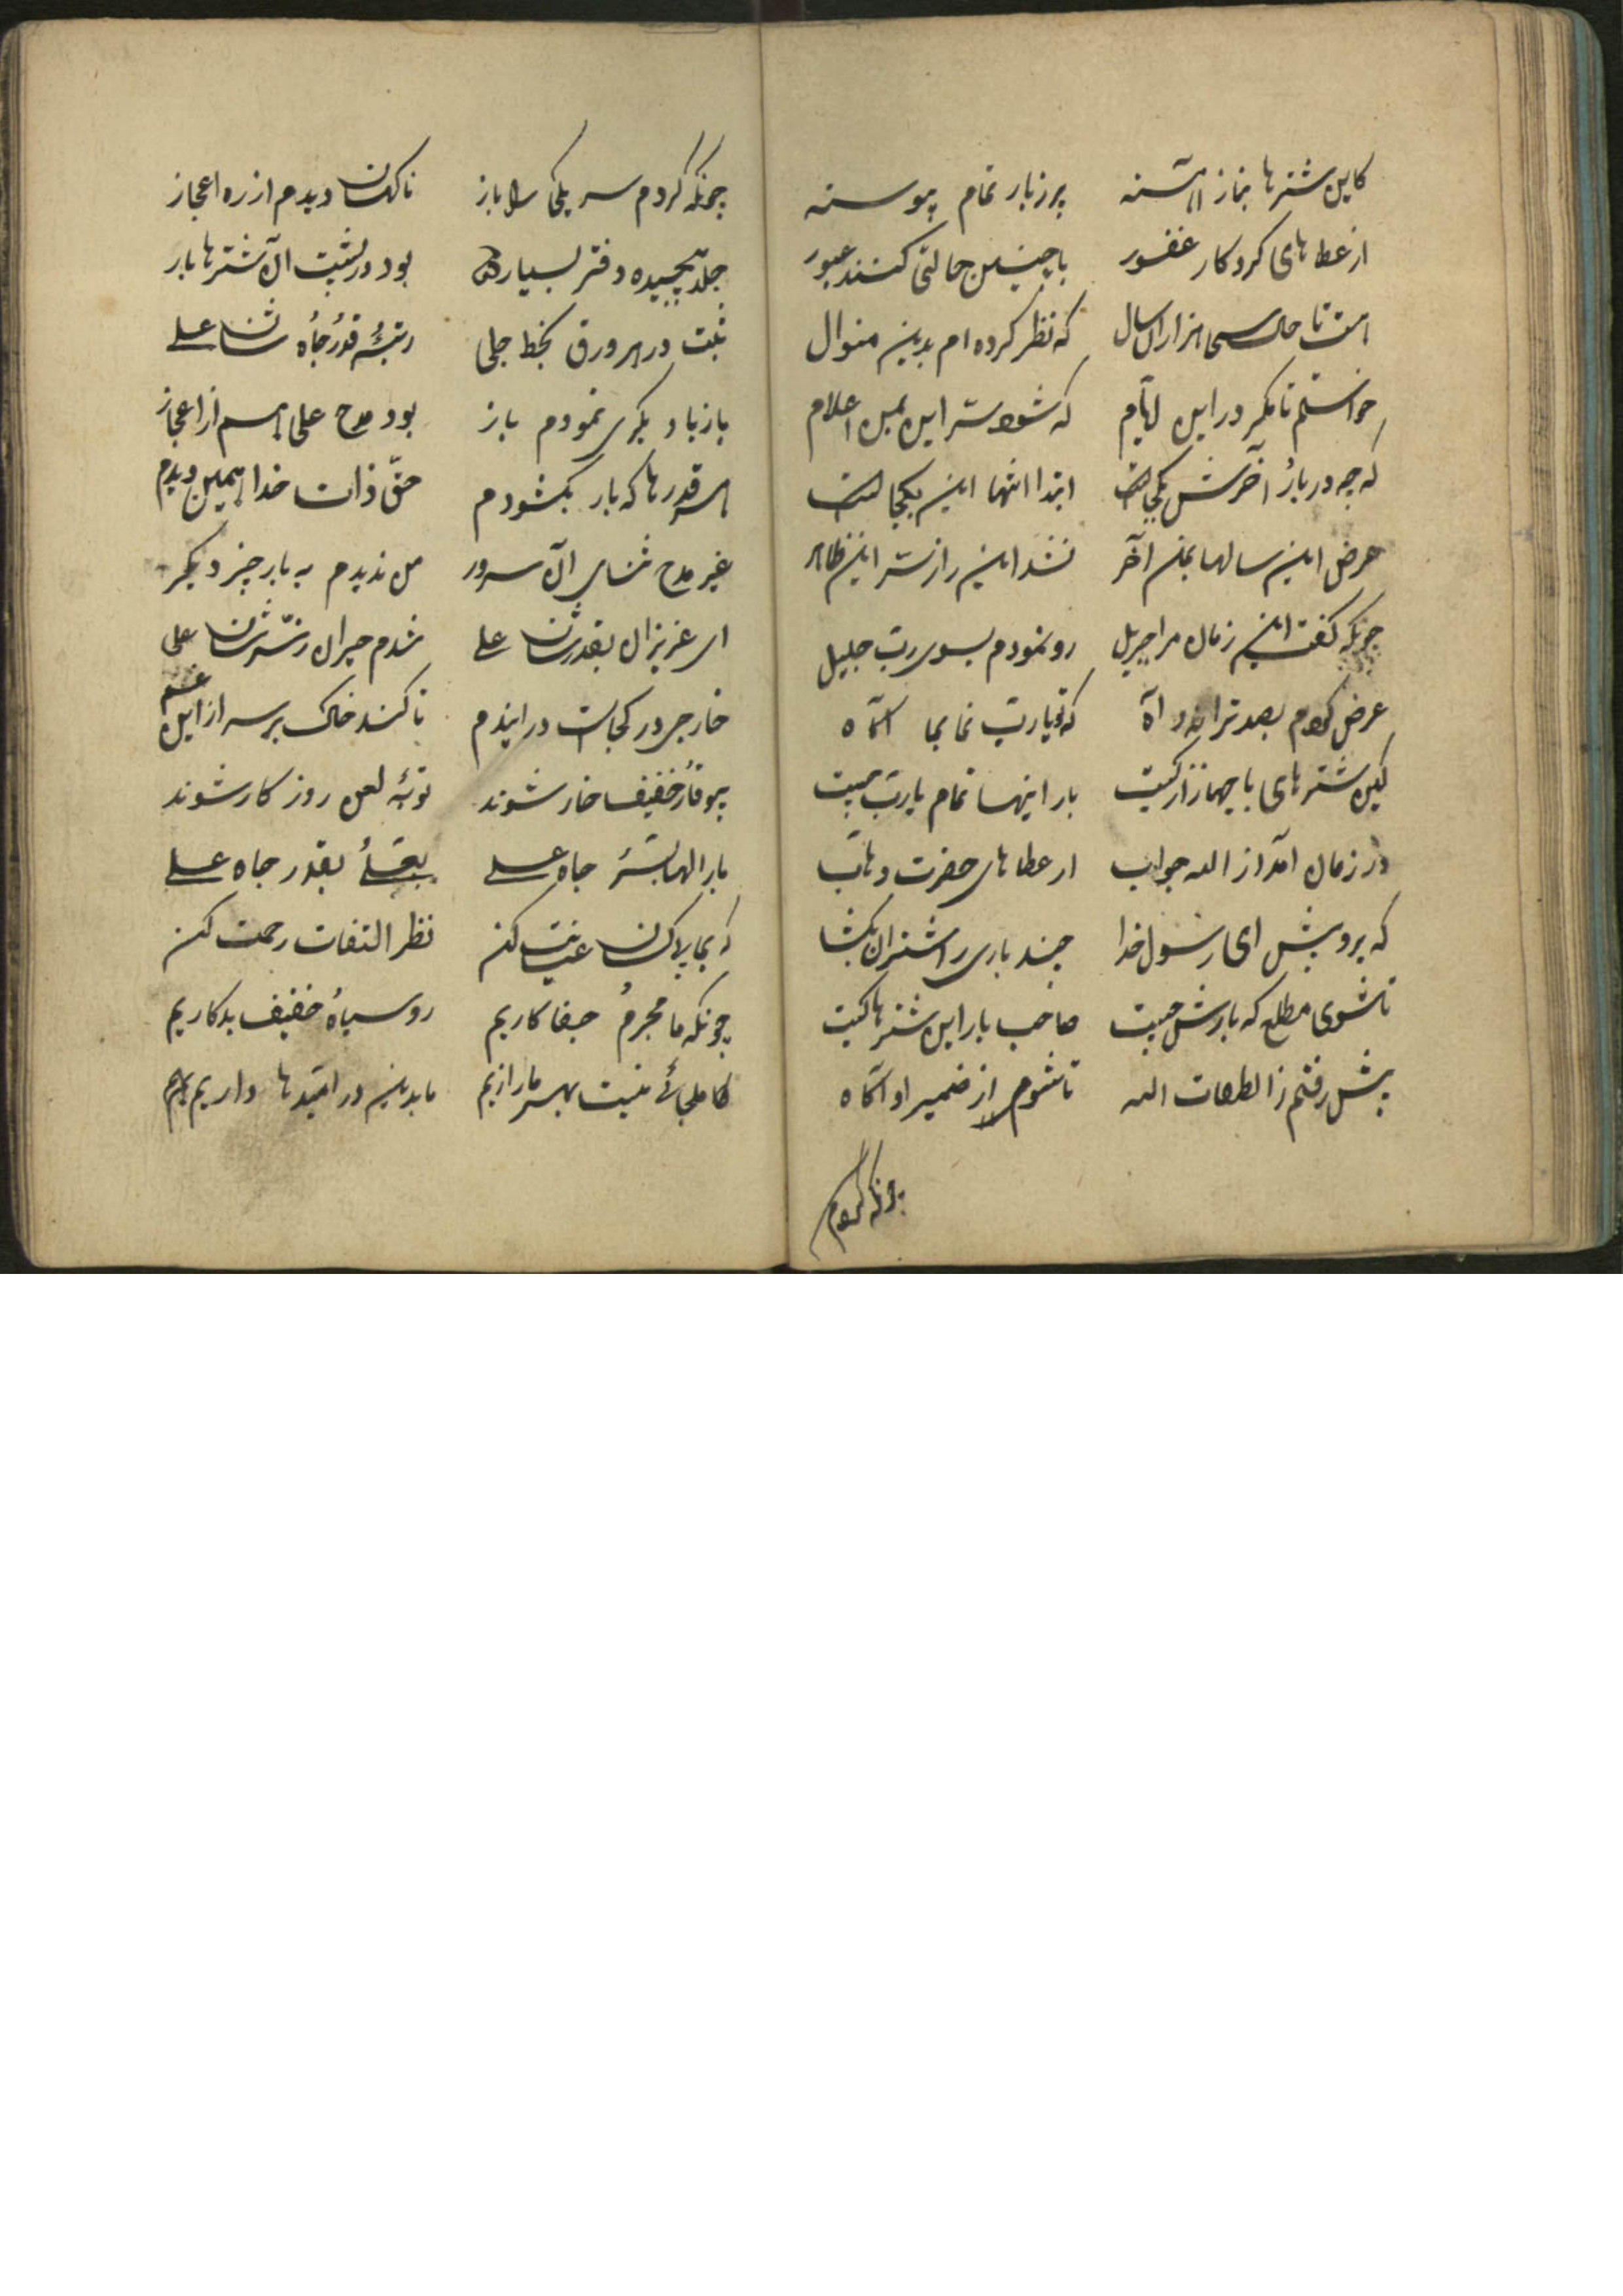 کاین شترها بماز آهسته پر ز بار تمام پیوسته
از عطاهای کردکار غفور با چنین حالتی کنند عبور
هست تا حال سی هزاران سال که نظر کرده ام بدین منوال
خواستم تا مکر در این ایام که شود سر این بمن اعلام
که چه در بار آخرش بکجاست ابتدا انتها این بکجاست
عرض این سالها بمن آخر نشد این راز سر این ظاهر
چونکه کفت این زمان مرا جبریل رو نمودم بسوی رب جلیل
عرض کردم بصد ترانه و آه که تو یا رب نما بما آکاه
کین شترهای با جهاز از کیست بار اینها تمام یا رب چیست
در زمان آمد از اله جواب از عطاهای حضرت وهاب
که برو پیش ای رسول خدا چند باری ز اشتران بکشا
تا شوی مطلع که بارش چیست صاحب بار این شترها کیست
پیش رفتم ز الطعات اله تا شوم از ضمیر او آکاه
چونکه کردم
چونکه کردم سر یکی را باز ناکهان دیدم از ره اعجاز
جلد پیچیده دفتر بسیار بود در پشت آن شترها بار
ثبت در هر ورق بخط جلی رتبه قدر جاه شان علی
باز بار دیکری نمودم باز بود مدح علی هم از اعجاز
هر قدرها که بار بکشودم حق ذات خدا همین دیدم
غیر مدح ثنای آن سرور من ندیدم به بار چیز دیکر
ای عزیزان بقدر شان علی شدم حیران ز سر شان علی
خارجی در کجاست در ایندم تا کند خاک بر سر از این غم
بیوقار خفیف خار شوند توبه لعن روز کار شوند
بار الها برتبه جاه علی بقدر جاه علی
که بما پلاکان عنایت کن نظر التفات رحمت کن
چونکه ما مجرم جفا کاریم رو سیاه خفیف بد کاریم
کاملجائے نیست بهر ما رازیم ما بدین در امیدها داریم